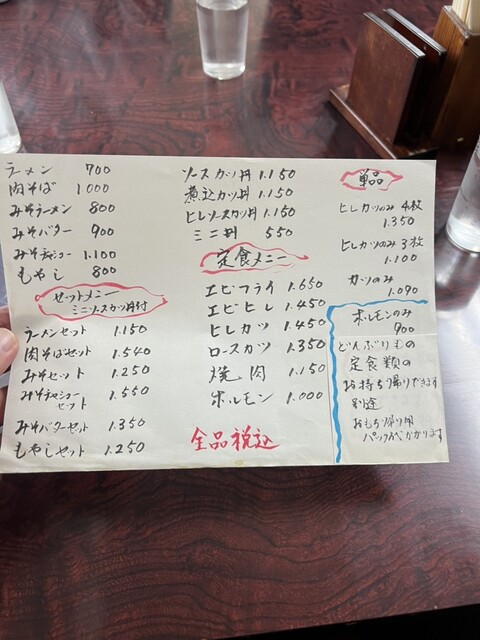 ラーメン 700
肉そば 1000
みそラーメン 800
みそバター 900
みそチャシュー 1.100
もやし 800
セットメニュー
ミニソースカツ丼付
ラーメンセット 1.150
肉そばセット 1.540
みそセット 1.250
みそチャシュー
セット 1.550
みそバターセット 1.350
もやしセット 1.250
ソースカツ丼 1.150
煮込カツ丼 1.150
ヒレソースカツ丼 1.150
ミニ丼 550
定食メニュー
エビフライ 1.650
エビヒレ 1.450
ヒレカツ 1.450
ロースカツ 1.350
焼肉 1.150
ホルモン 1.000
全品税込
単品
ヒレカツのみ 4枚
1.350
ヒレカツのみ 3枚
1.100
カツのみ
1.090
ホルモンのみ
900
どんぶりもの
定食類の
お持ち帰りできます
別途
おもち帰り用
パック代がかかります